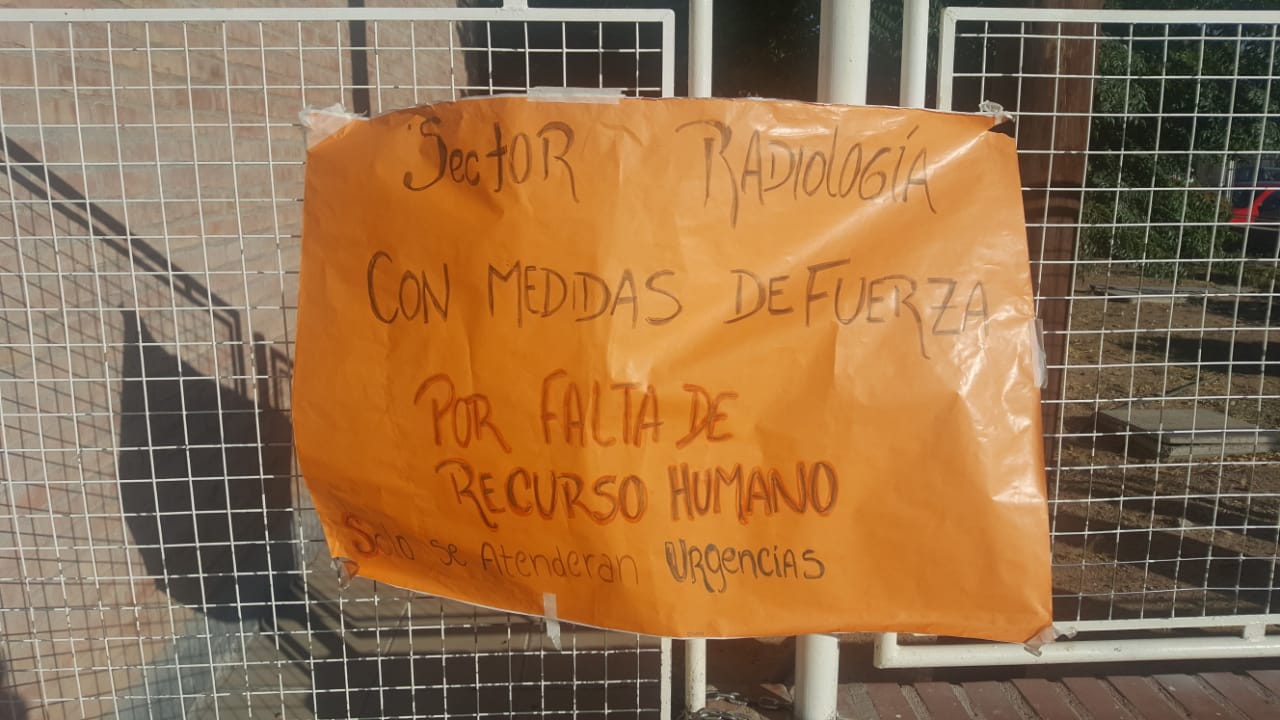 Sector Radiología
Con medidas de fuerza
Por falta de
Recurso humano
Solo se Atenderan Urgencias